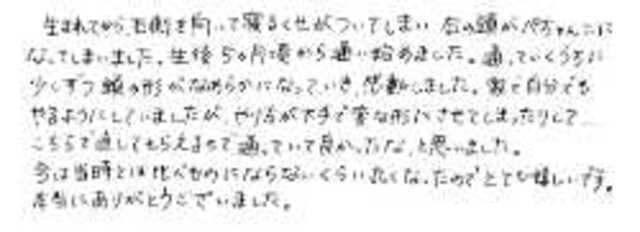 生まれてから右側を向いて寝るくせがついてしまい 右の頭がペちゃんこに
なってしまいました。生後5ヵ月頃から通い始めました。通っていくうちに
少しずつ頭の形がなめらかになっていき、感動しました。家で自分でも
やるようにしていましたが、やり方が下手で変な形にさせてしまったりして
こちらで直してもらえるので通っていて良かったな、と思いました。
今は当時とは比べものにならないくらい丸くなったのでとても嬉しいです。
本当にありがとうございました。